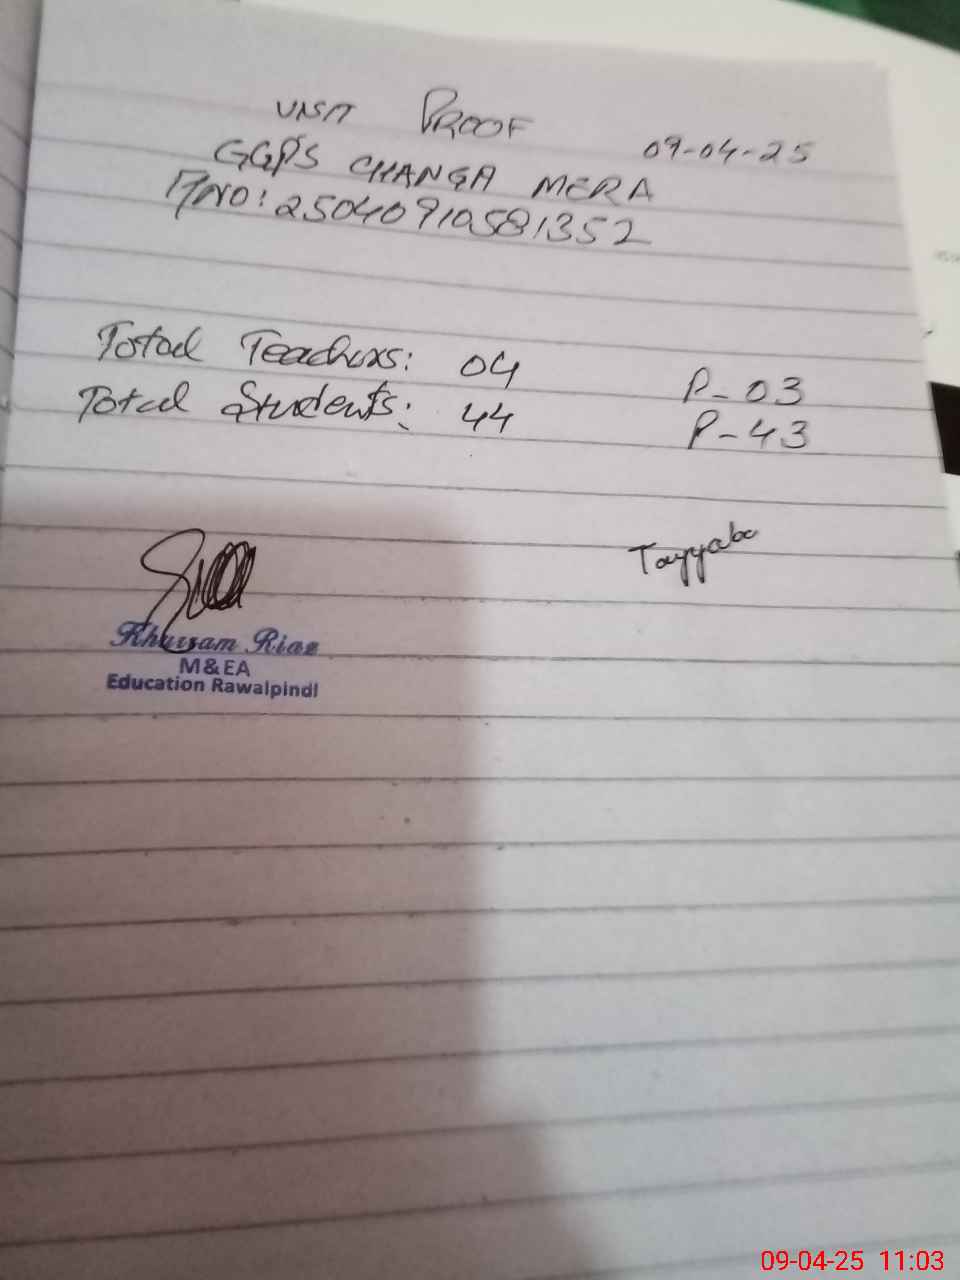 VISIT PROOF 09-04-25
GGPS CHANGA MERA
NO: 25040910581352
Total Teachers: 04 P-03
Total Students: 44 P-43
Tayyaba
Khurram Riaz
M&EA
Education Rawalpindi
09-04-25 11:03